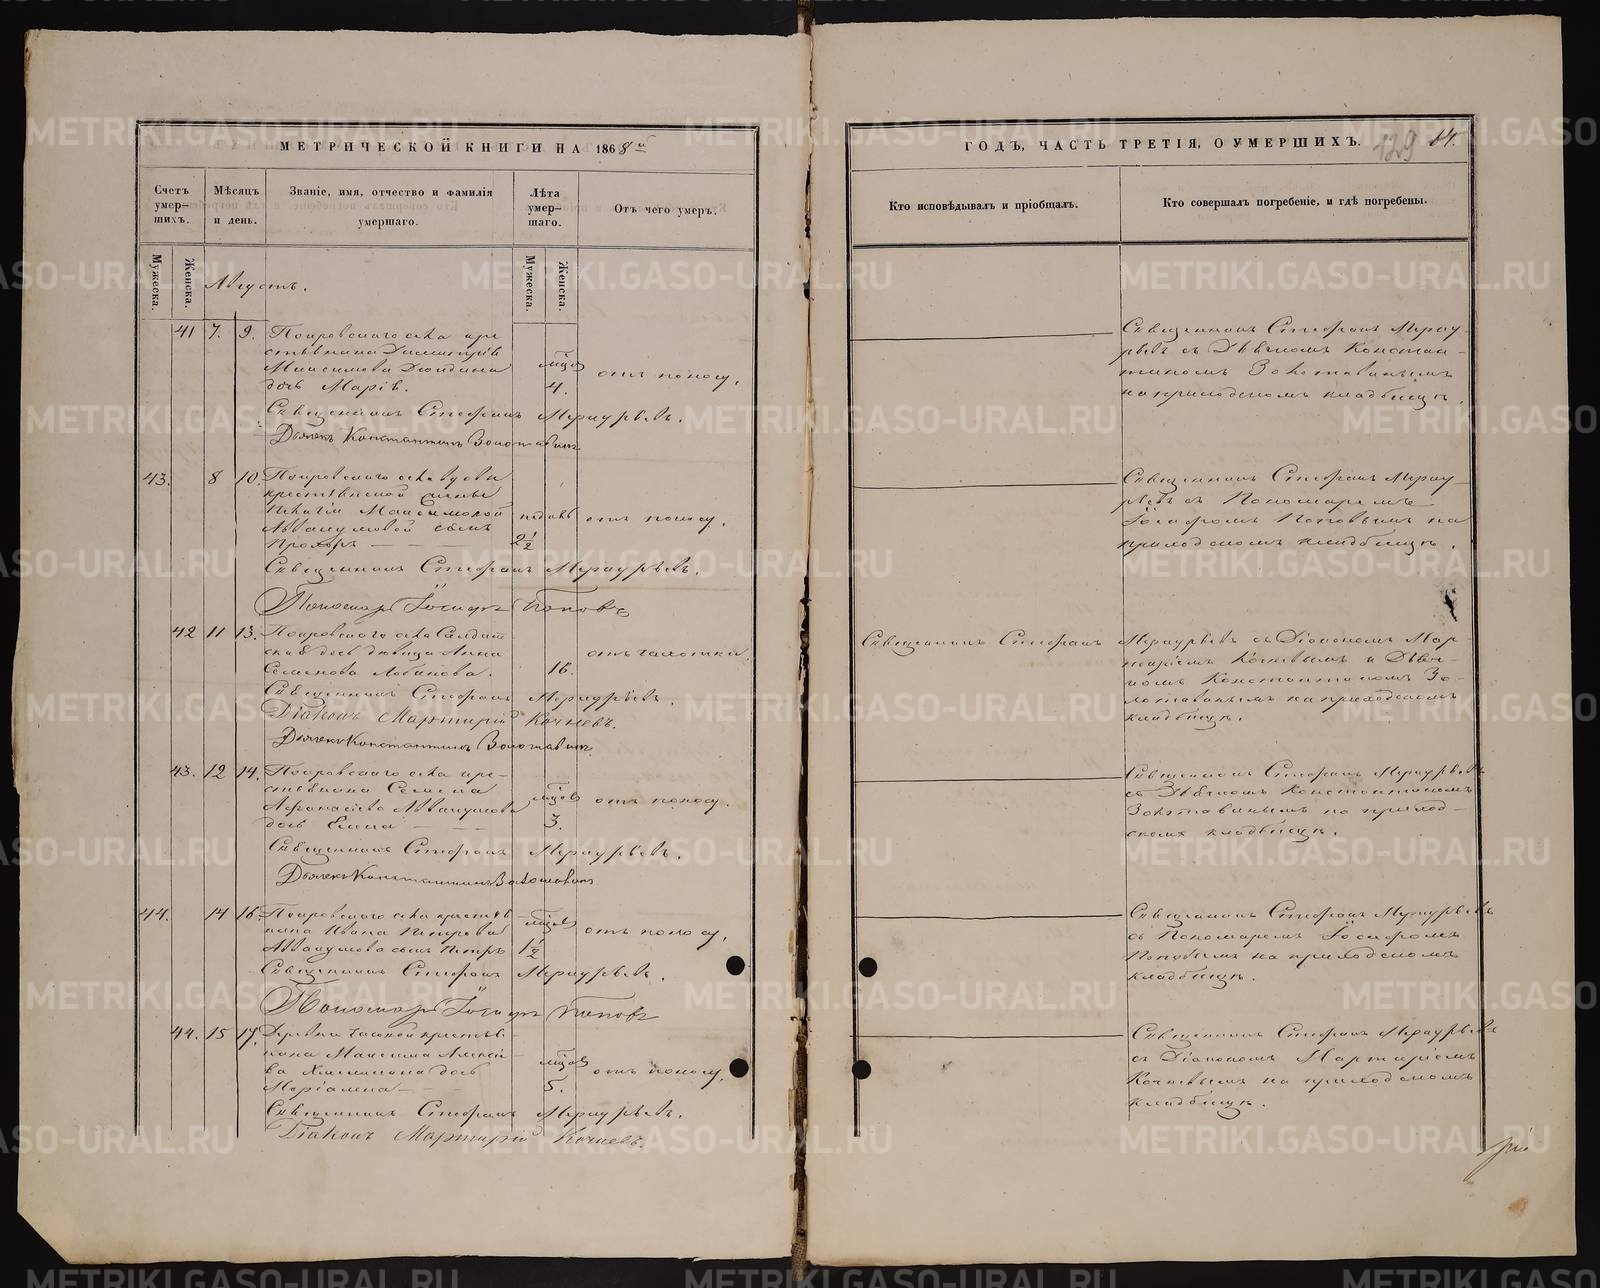 МЕТРИЧЕСКОЙ КНИГИ НА 1868й
Счетъ умерших.
Мѣсяцъ и день.
Званіе, имя, отчество и фамилія умершаго.
Лѣта умершаго.
Отъ чего умеръ.
Мужеска.
Женска.
Мужеска.
Женска.
Августъ.
41 7. 9. Покровскаго села кре-
стьянина Димитрія
Максимова дочь Марія.
мѣсцов 4.
отъ поносу.
Священникъ Стефанъ Меркурьевъ.
Дьячекъ Константинъ Золотавинъ
43. 8 10. Покровскаго села вдовы
крестьянской жены
Пелагіи Максимовой
Аввакумовой сынъ
Прохоръ
недѣль 2½
отъ поносу.
Священникъ Стефанъ Меркурьевъ.
Пономарь Іосифъ Поповъ
42 11 13. Покровскаго села Солдат-
ская дочь дѣвица Анна
Семенова Лобанова.
16.
отъ чахотки.
Священникъ Стефанъ Меркурьевъ.
Діаконъ Мартирій Кочневъ.
Дьячекъ Константинъ Золотавинъ.
43. 12 14. Покровскаго села кре-
стьянина Семена
Афанасіева Аввакумова
дочь Елена
мѣсцов 3.
отъ поносу.
Священникъ Стефанъ Меркурьевъ.
Дьячекъ Константинъ Золотавинъ
44. 14 16. Покровскаго села крестья-
нина Ивана Петрова
Аввакумова сынъ Петръ
мѣсцов 1½
отъ поносу.
Священникъ Стефанъ Меркурьевъ.
Пономарь Іосифъ Поповъ
44. 15 17. Деревни крестья-
нина Максима Алексіе-
ва дочь
мѣсцов 5.
отъ поносу.
Священникъ Стефанъ Меркурьевъ.
Діаконъ Мартирій Кочневъ.
ГОДЪ, ЧАСТЬ ТРЕТІЯ, О УМЕРШИХЪ.
129
Кто исповѣдывалъ и пріобщалъ.
Кто совершалъ погребеніе, и гдѣ погребены.
Священникъ Стефанъ Мерку-
рьевъ съ Дьячкомъ Констан-
тиномъ Золотавинымъ
на приходскомъ кладбищѣ.
Священникъ Стефанъ Мерку-
рьевъ съ Пономаремъ
Іосифомъ Поповымъ на
приходскомъ кладбищѣ.
Священникъ Стефанъ Меркурьевъ съ Діакономъ Мар-
тиріемъ Кочневымъ и Дьяч-
комъ Константиномъ Зо-
лотавинымъ на приходскомъ
кладбищѣ.
Священникъ Стефанъ Меркурьевъ
съ Дьячкомъ Константиномъ
Золотавинымъ на приход-
скомъ кладбищѣ.
Священникъ Стефанъ Меркурьевъ
съ Пономаремъ Іосифомъ
Поповымъ на приходскомъ
кладбищѣ.
Священникъ Стефанъ Меркурьевъ
съ Діакономъ Мартиріемъ
Кочневымъ на приходскомъ
кладбищѣ.
METRIKI.GASO-URAL.RU